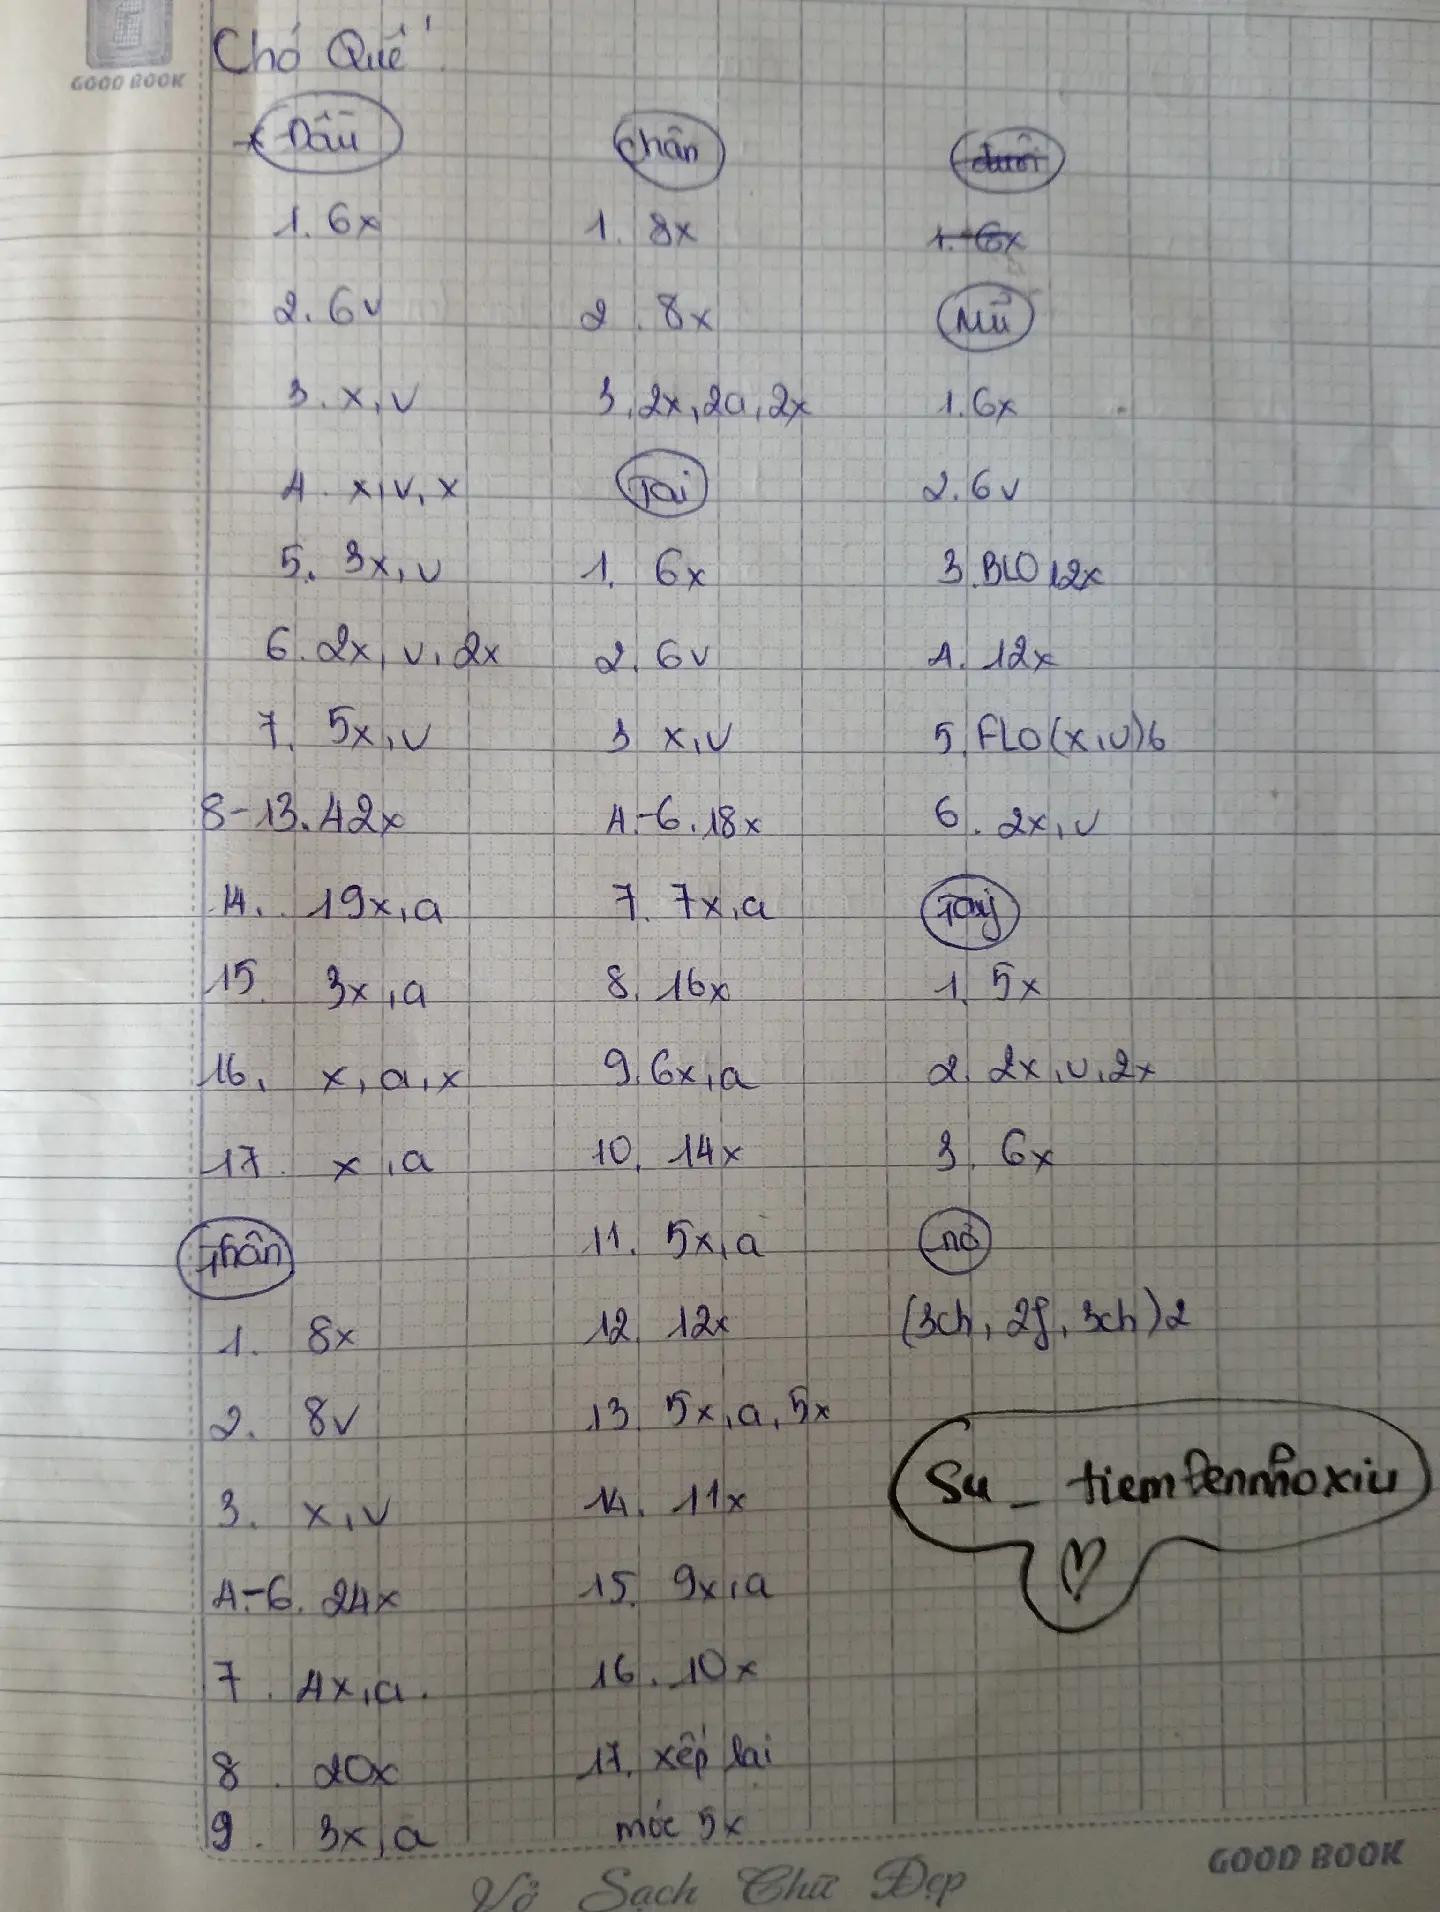 GOOD BOOK
Chó Quế
Đầu
1. 6x
2. 6v
3. x, v
4. x, v, x
5. 3x, v
6. 2x, v, 2x
7. 5x, v
8-13. 42x
14. 19x, a
15. 3x, a
16. x, a, x
17. x, a
Thân
1. 8x
2. 8v
3. x, v
4-6. 24x
7. 4x, a.
8. 20x
9. 3x, a
Chân
1. 8x
2. 8x
3. 2x, 2a, 2x
Tai
1. 6x
2. 6v
3 x, v
4-6. 18x
7. 7x, a
8. 16x
9. 6x, a
10. 14x
11. 5x, a
12. 12x
13. 5x, a, 5x
14. 11x
15. 9x, a
16. 10x
17. xếp lại
móc 5x
đuôi
1. 6x
Mũ
1. 6x
2. 6v
3. BLO 12x
4. 12x
5. FLO (x, v) 6
6. 2x, v
Tay
1. 5x
2. 2x, v, 2x
3. 6x
nơ
(3ch, 2f, 3ch) 2
GOOD BOOK
Vở Sạch Chữ Đẹp